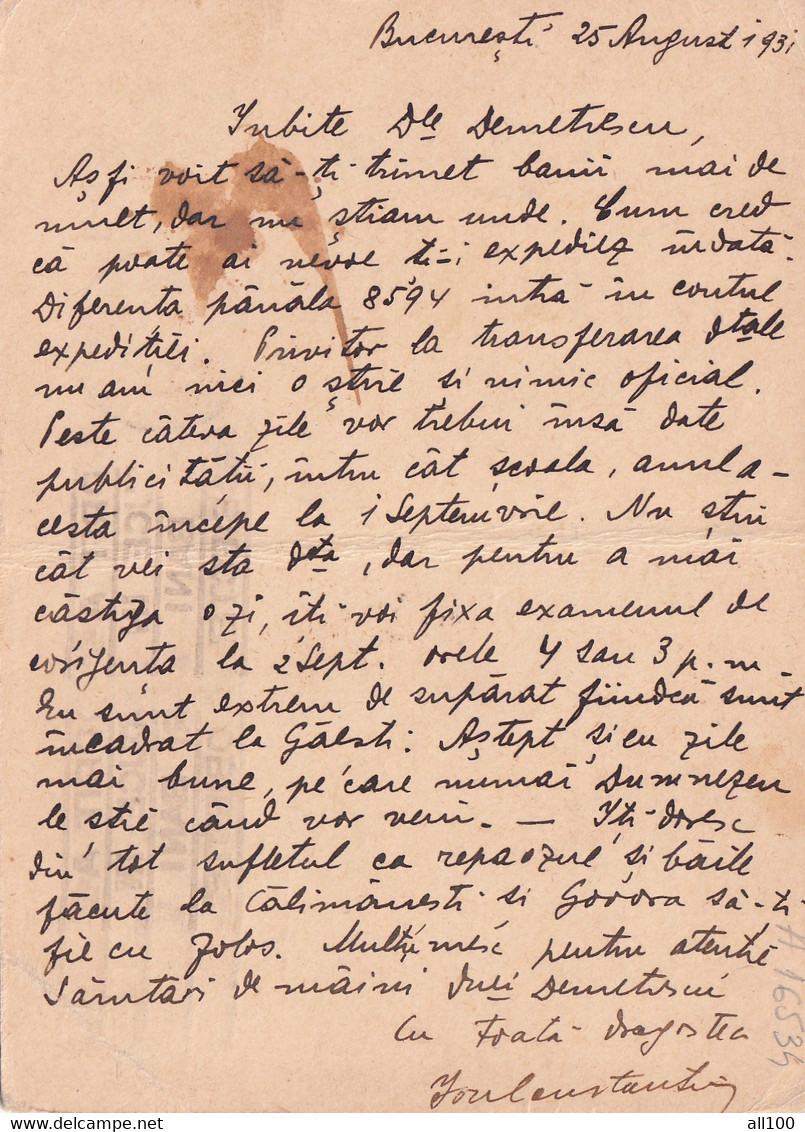 București 25 August 1931
Iubite Dle Demetrescu,
Aș fi voit să-ți trimet banii mai de
mult, dar nu știam unde. Cum cred
că poate ai nevoe ți-i expediez îndată.
Diferența până la 8594 intră în contul
expediției. Privitor la transferarea dtale
nu am nici o știre și nimic oficial.
Peste câteva zile vor trebui însă date
publicității, întru cât școala, anul a-
cesta începe la 1 Septemvrie. Nu știu
cât vei sta dta, dar pentru a mai
câștiga o zi, îți voi fixa examenul de
corigență la 2 Sept. orele 4 sau 3 p.m
Eu sunt extrem de supărat fiindcă sunt
încadrat la Găești. Aștept și eu zile
mai bune, pe care numai Dumnezeu
le știe când vor veni. — Îți doresc
din tot sufletul ca repaozul și băile
făcute la Călimănești și Govora să-ți
fie cu folos. Mulțumesc pentru atenție
Sărutări de mâini dnei Demetrescu
Cu toată dragostea
A 16534
all100